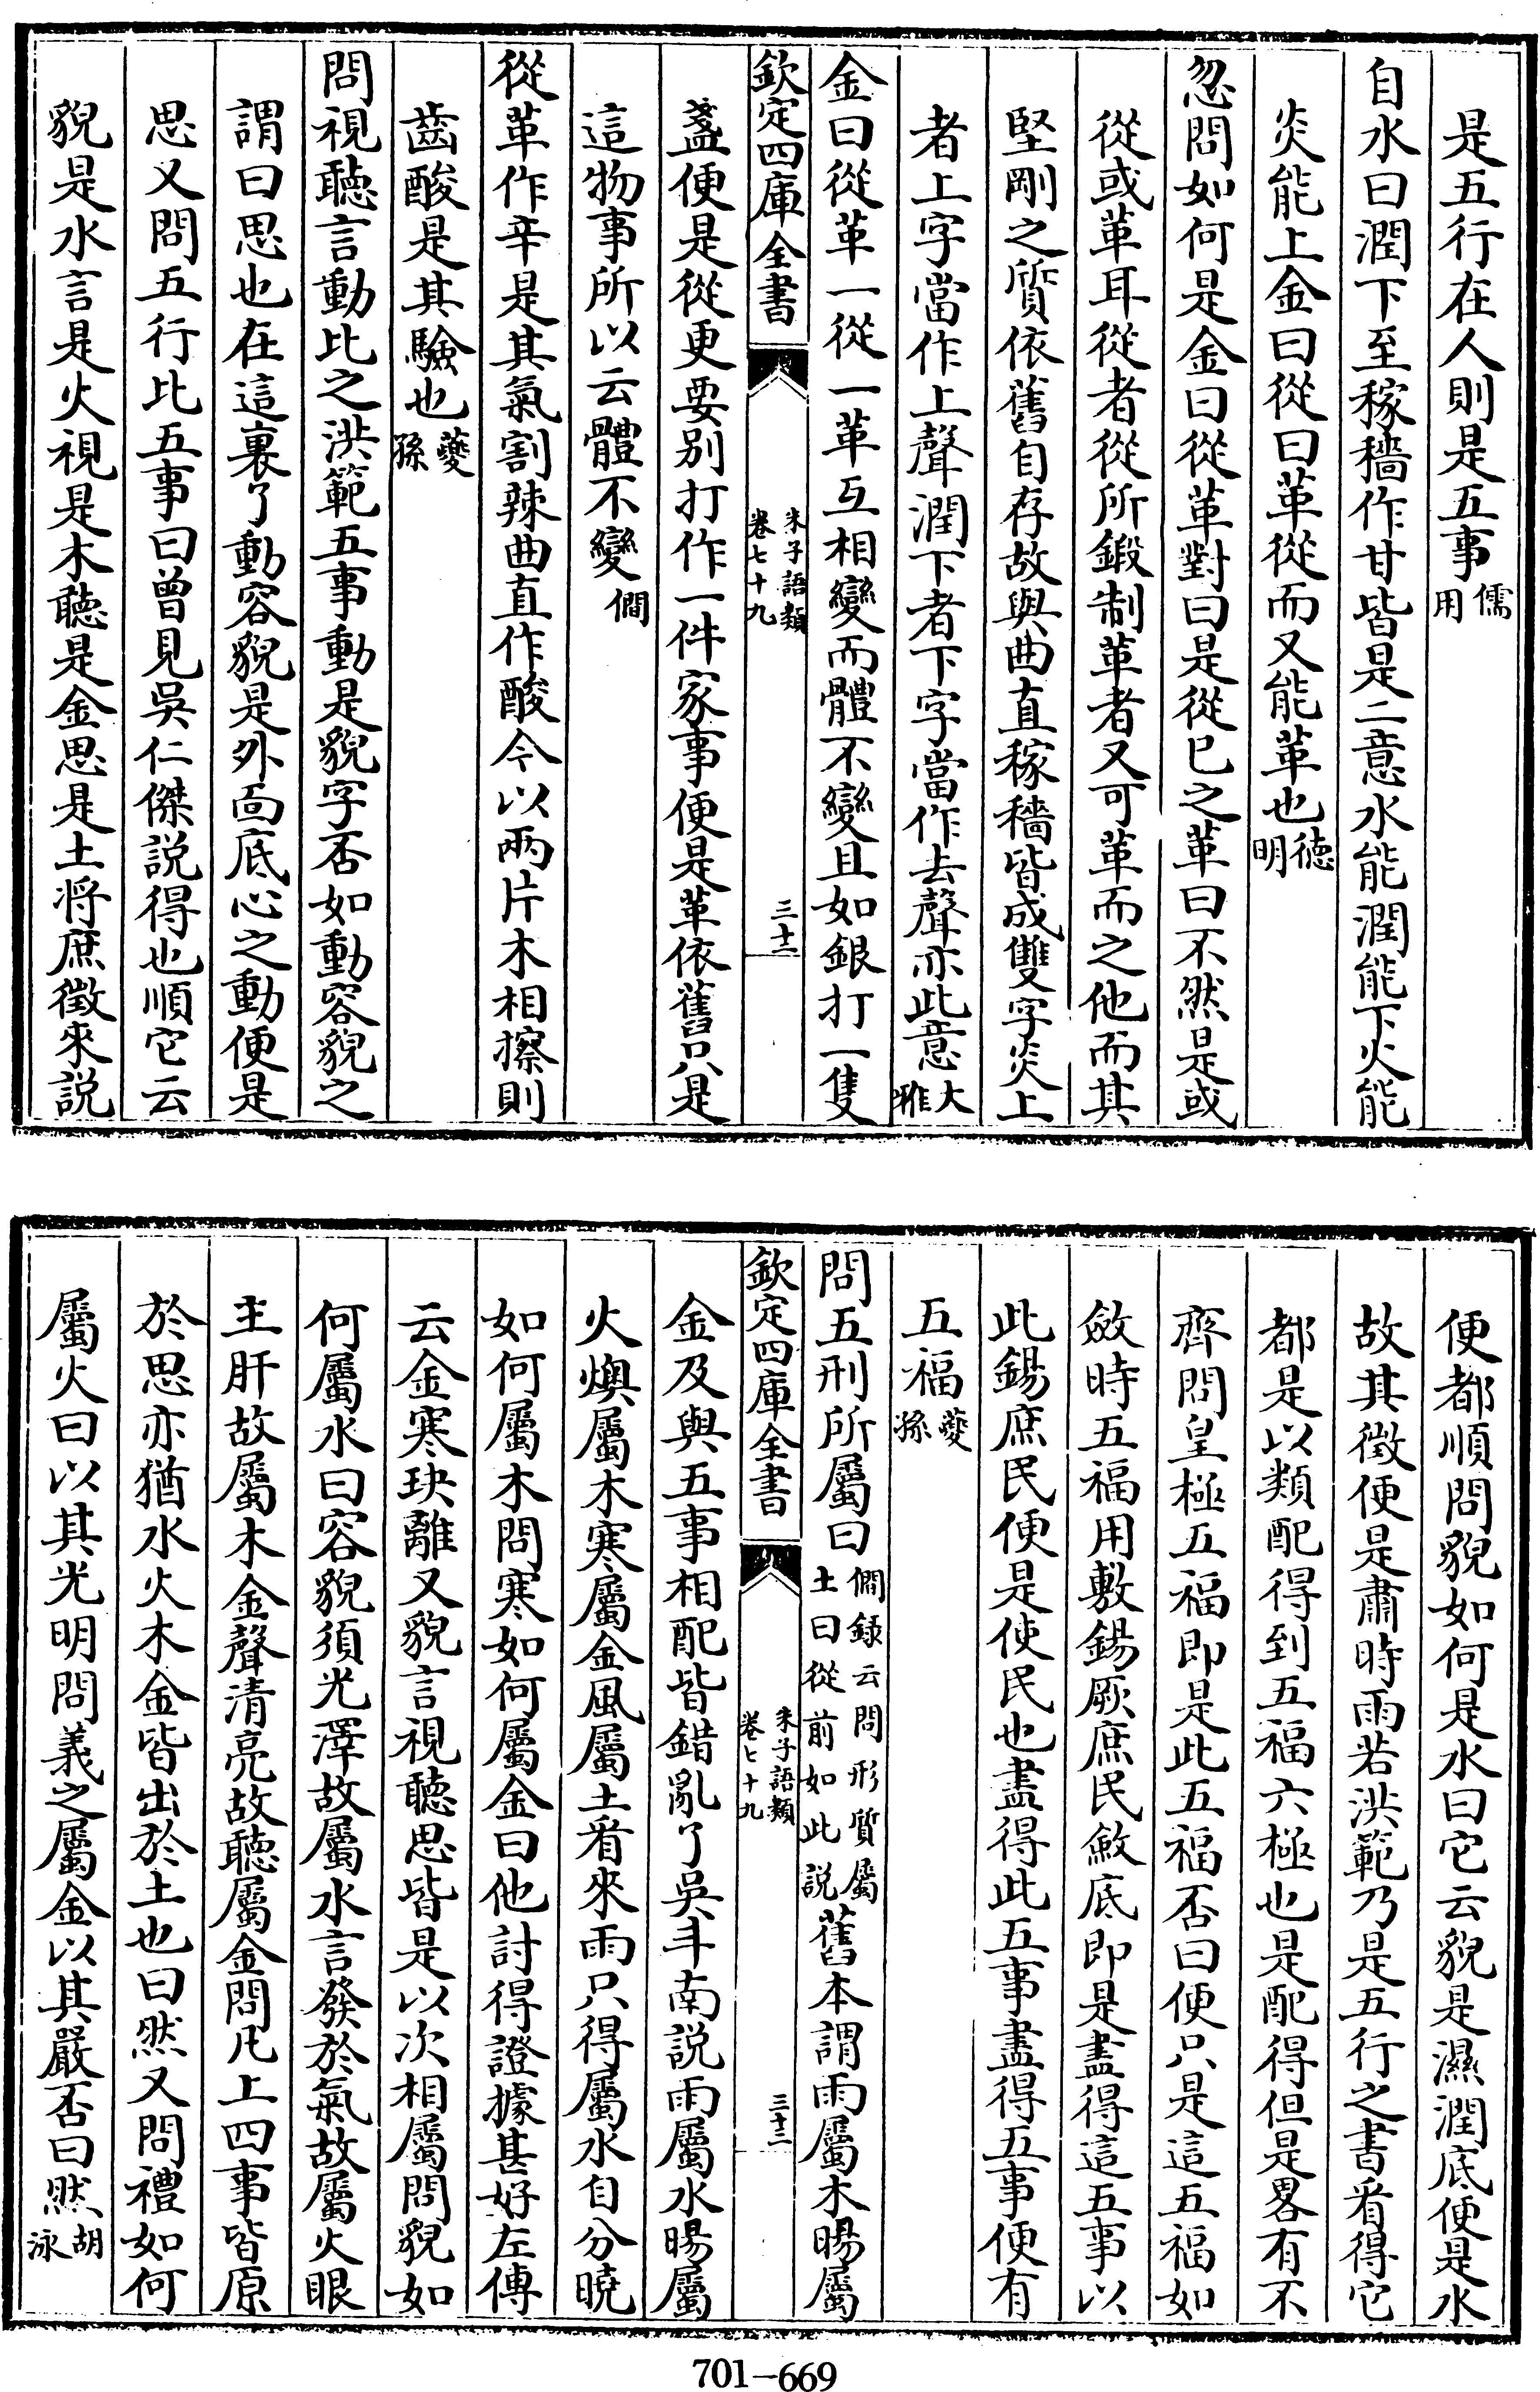 是五行在人則是五事儒用
自水曰潤下至稼穡作甘皆是二意水能潤能下火能
炎能上金曰從曰革從而又能革也德明
忽問如何是金曰從革對曰是從已之革曰不然是或
從或革耳從者從所鍛制革者又可革而之他而其
堅剛之質依舊自存故與曲直稼穡皆成雙字炎上
者上字當作上聲潤下者下字當作去聲亦此意大雅
金曰從革一從一革互相變而體不變且如銀打一隻
欽定四庫全書
朱子語類
卷七十九
三十二
盞便是從更要别打作一件家事便是革依舊只是
這物事所以云體不變僩
從革作辛是其氣割辣曲直作酸今以兩片木相擦則
齒酸是其驗也夔孫
問視聽言動比之洪範五事動是貌字否如動容貌之
謂曰思也在這裏了動容貌是外面底心之動便是
思又問五行比五事曰曽見吳仁傑説得也順它云
貌是水言是火視是木聽是金思是土将庶徴來説
便都順問貌如何是水曰它云貌是濕潤底便是水
故其徴便是肅時雨若洪範乃是五行之書看得它
都是以類配得到五福六極也是配得但是畧有不
齊問皇極五福即是此五福否曰便只是這五福如
斂時五福用敷錫厥庶民斂底即是盡得這五事以
此錫庶民便是使民也盡得此五事盡得五事便有
五福夔孫
問五刑所屬曰僩録云問形質屬土曰從前如此説舊本謂雨屬木暘屬
欽定四庫全書
朱子語類
卷七十九
三十三
金及與五事相配皆錯亂了吳斗南説雨屬水暘屬
火燠屬木寒屬金風屬土看來雨只得屬水自分曉
如何屬木問寒如何屬金曰他討得證據甚好左傳
云金寒玦離又貌言視聽思皆是以次相屬問貌如
何屬水曰容貌須光澤故屬水言發於氣故屬火眼
主肝故屬木金聲清亮故聽屬金問凡上四事皆原
於思亦猶水火木金皆出於土也曰然又問禮如何
屬火曰以其光明問義之屬金以其嚴否曰然胡泳
701-669